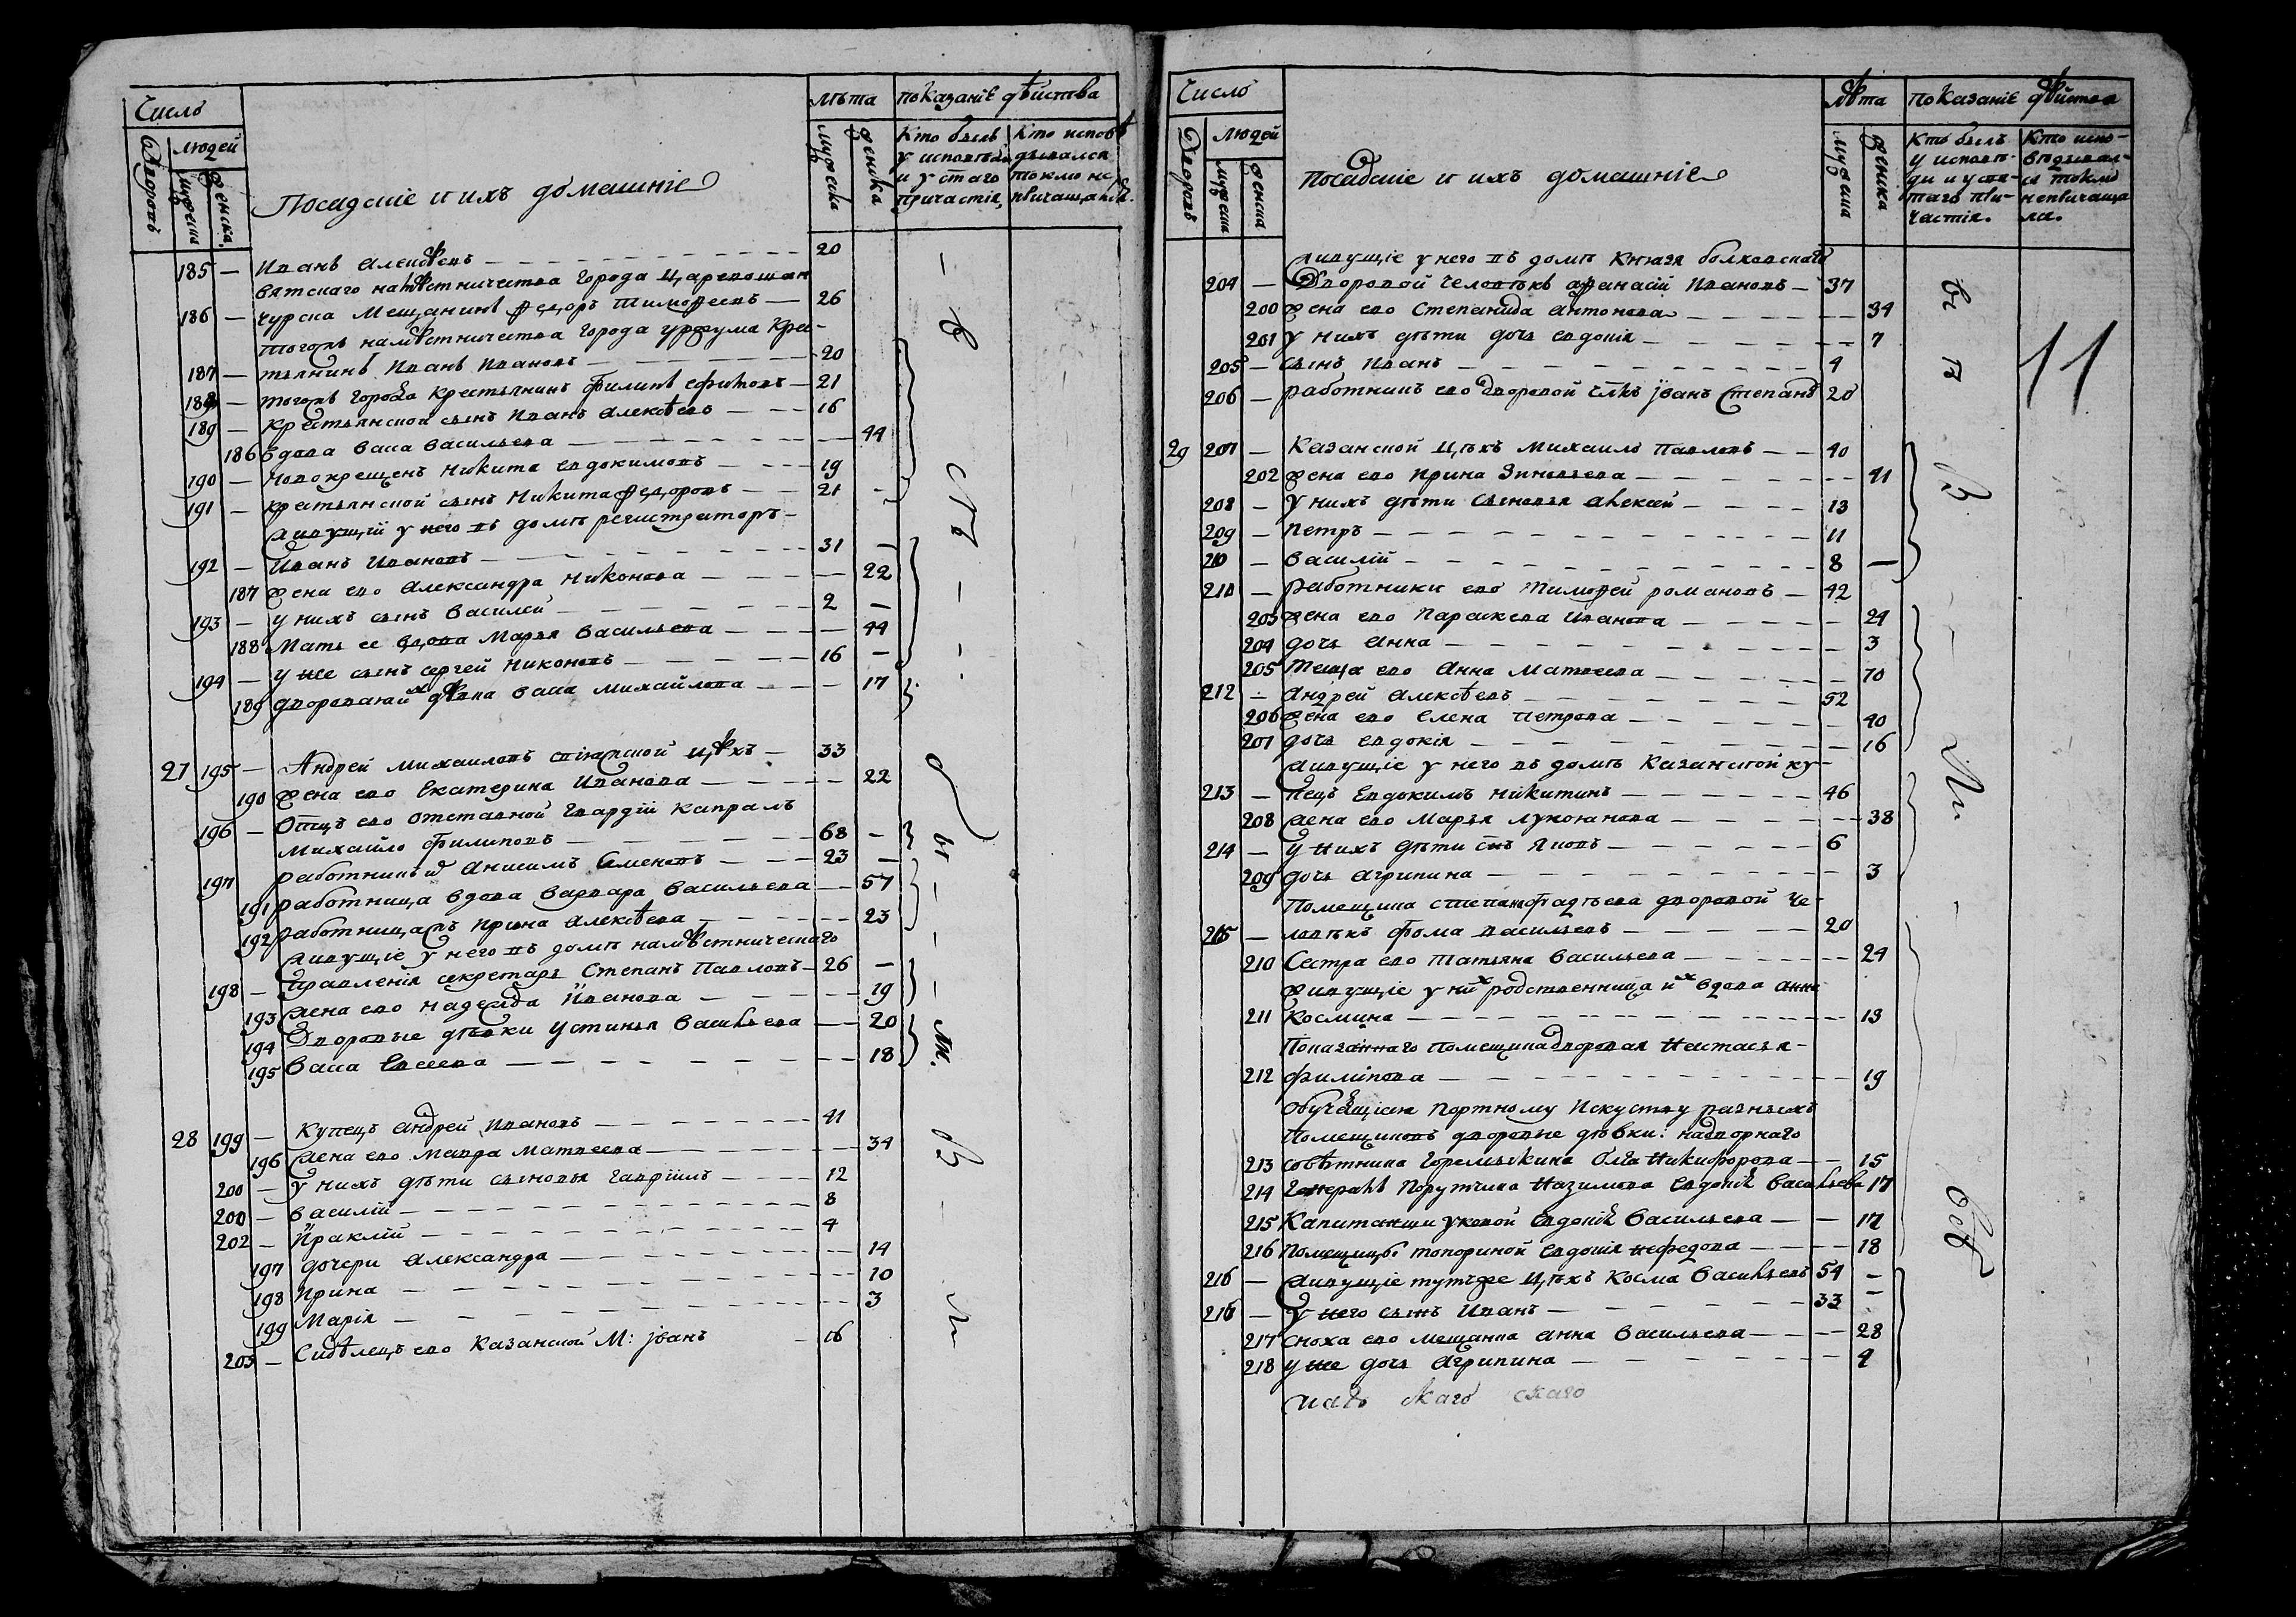 Число
Дворовъ
людей
мужеска
женска
Посадскіе и ихъ домашніе
лѣта
мужеска
женска
показаніе дѣйства
Кто былъ у исповѣди и у стаго причастія,
Кто исповѣдывался токмо не причащался.
185 — Иванъ Алексѣевъ — 20
вятскаго намѣстничества города Царевошан
186 — чурска Мещанинъ Федоръ Тимофеевъ — 26
тогожъ намѣстничества города уржума Крес-
187 — тьянинъ Иванъ Ивановъ — 20
188 — тогожъ города Крестьянинъ Филипъ Ефимовъ — 21
189 — Крестьянской сынъ Иванъ Алексѣевъ — 16
186 вдова Васа Васильева — 44
190 — Новокрещенъ Никита Евдокимовъ — 19
191 — крестьянской сынъ Никита Федоровъ — 21 —
живущій у него въ домѣ регистраторъ —
192 — Иванъ Ивановъ — 31 —
187 жена ево Александра Никонова — 22
193 — у нихъ сынъ Василей — 2 —
188 Мать ее вдова Марья Васильева — 44
194 — у нее сынъ Сергей Никоновъ — 16 —
189 дворовая их дѣвка Васа Михайлова — 17
27 195 — Андрей Михаиловъ цѣхъ — 33
190 жена ево Екатерина Иванова — 22
196 — Отецъ ево отставной Гвардіи капралъ
Михайло Филиповъ — 68 —
197 работникъ Анисимъ Семеновъ — 23 —
191 работница вдова Варвара Васильева — 57
192 работница Ирина Алексѣева — 23
живущіе у него въ домѣ намѣстническаго
198 — правленія секретарь Степанъ Павловъ — 26 —
193 жена ево надежда Иванова — 19
194 Дворовые дѣвки Устинья Васильева — 20
195 Васа Евсеева — 18
28 199 — Купецъ Андрей Ивановъ — 41
196 жена ево Мавра Матвеева — 34
200 — у нихъ дѣти сыновья Гавріилъ — 12
200 — василій — 8
202 — Ираклій — 4
197 дочери Александра — 14
198 Ирина — 10
199 Марія — 3
203 — Сидѣлецъ ево Казанской М: іванъ — 16
Число
Дворовъ
людей
мужеска
женска
Посадскіе и ихъ домашніе
лѣта
мужеска
женска
Показаніе дѣйства
Кто былъ у исповѣди и у стаго причастія.
Кто исповѣдывался токмо непричащался.
11
живущіе у него въ домѣ Князя болховскаго
204 — Дворовой человѣкъ афанасій Ивановъ — 37
200 жена ево Степанида Антонова — 34
201 у нихъ дѣти дочь евдокія — 7
205 — сынъ Иванъ — 4
206 — работникъ ево дворовой члкъ іванъ Степанъ 20
29 207 — Казанской Цѣхъ Михаило Павловъ — 40
202 жена ево Ирина Зиновьева — 41
208 — у нихъ дѣти сыновья алексей — 13
209 — Петръ — 11
210 — Василій — 8 —
211 — Работники ево Тимофей романовъ — 42
203 жена ево Параскева Иванова — 24
204 дочь Анна — 3
205 Теща ево Анна Матвеева — 70
212 — Андрей Алексѣевъ — 52
206 жена ево Елена Петрова — 40
207 дочь Евдокія — 16
живущіе у него въ домѣ Казанской ку-
213 — пецъ Евдокимъ Никитинъ — 46
208 жена ево Марья Лукоянова — 38
214 — у нихъ дѣти снъ Яковъ — 6
209 дочь агрипина — 3
Помещика степана фадѣева дворовой че-
215 — ловѣкъ Фома васильевъ — 20
210 Сестра ево Татьяна Васильева — 24
живущіе у них родственница их вдова анна
211 Космина — 13
Показаннаго помещика дворовая Настасья —
212 Филипова — 19
Обучающіяся Портному Искуству разныхъ
Помещиковъ дворовые дѣвки: надворнаго
213 совѣтника Горемыкина Олга Никифорова — 15
214 Генералъ Порутчика Назимова Евдокія Васильева 17
215 Капитанши уковой Евдокія Васильева — 17
216 Помещицы топориной Евдокія Нефедова — 18
216 — живущіе тутъже Цѣхъ Косма Васильевъ 54 —
216 — У него сынъ Иванъ — 33 —
217 сноха ево мещанка Анна Васильева — 28
218 у нее дочь Агрипина — 4
скаго